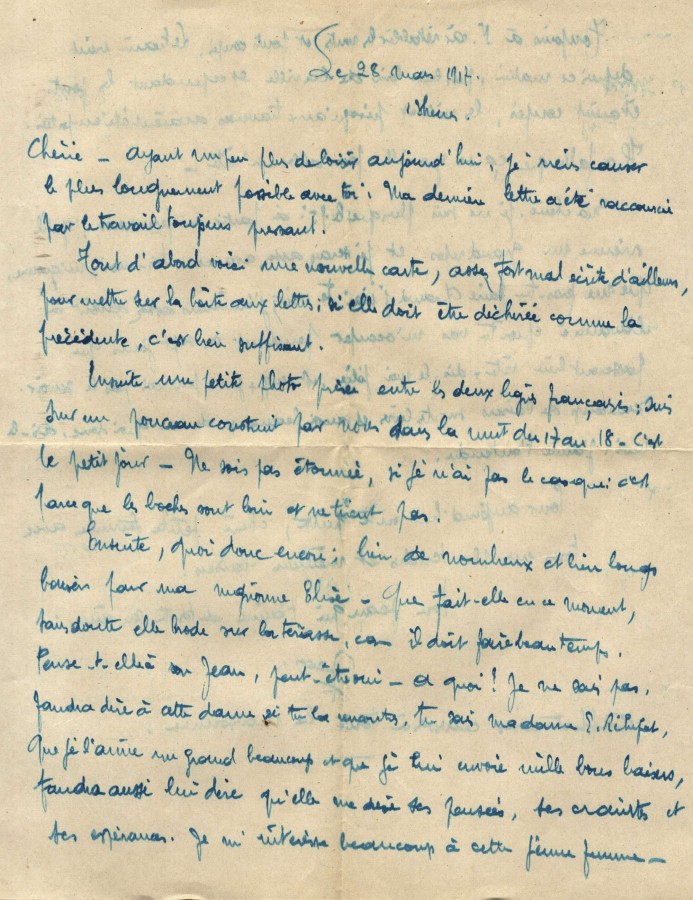 Le 28 mars 1917.
Chérie – ayant un peu plus de loisir aujourd'hui, je vais causer
le plus longuement possible avec toi. Ma dernière lettre a été raccourcie
par le travail toujours pressant!
Tout d'abord voici une nouvelle carte, assez fort mal écrite d'ailleurs,
pour mettre sur la boîte aux lettres; si elle doit être déchirée comme la
précédente, c'est bien suffisant.
Ensuite une petite photo prise entre les deux lignes françaises; suis
sur un ponceau construit par nous dans la nuit du 17 au 18 – C'est
le petit jour – Ne sois pas étonnée, si je n'ai pas le casque; c'est
parce que les boches sont loin et ne tirent pas!
Ensuite, quoi donc encore; bien de nombreux et bien longs
baisers pour ma mignonne Elise – Que fait-elle en ce moment,
sans doute elle brode sur la terrasse, car il doit faire beau temps.
Pense-t-elle à son Jean, peut-être oui – a quoi! Je ne sais pas,
faudra dire à cette dame si tu la rencontres, tu sais madame E.
Que je l'aime un grand beaucoup et que je lui envoie mille bons baisers,
faudra aussi lui dire qu'elle me dise ses pensées, ses craintes et
ses espérances. Je m'intéresse beaucoup à cette jeune femme –